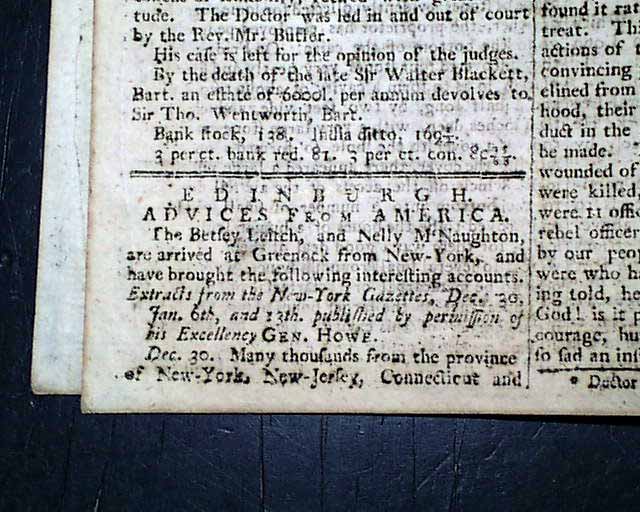 tude. The Doctor was led in and out of court
by the Rev. Mr. Butler.
His case is left for the opinion of the judges.
By the death of the late Sir Walter Blackett,
Bart. an estate of 6000l. per annum devolves to
Sir Tho. Wentworth, Bart.
Bank stock, 138. India ditto,
3 per ct. bank red. 81. 3 per ct. con.
EDINBURGH.
ADVICES FROM AMERICA.
The Betsey Leitch, and Nelly M'Naughton,
are arrived at Greenock from New-York, and
have brought the following interesting accounts.
Extracts from the New-York Gazettes, Dec. 30,
Jan. 6th, and 13th. published by permission of
his Excellency GEN. HOWE.
Dec. 30. Many thousands from the province
of New-York, New-Jersey, Connecticut and
found it
treat.
actions of
convincing
clined from
hood, their
duct in the
be made.
wounded of
were killed
were 11 offi
rebel officer
by our peo
were who ha
ing told, he
God! is it p
courage, hu
so sad an in
* Doctor